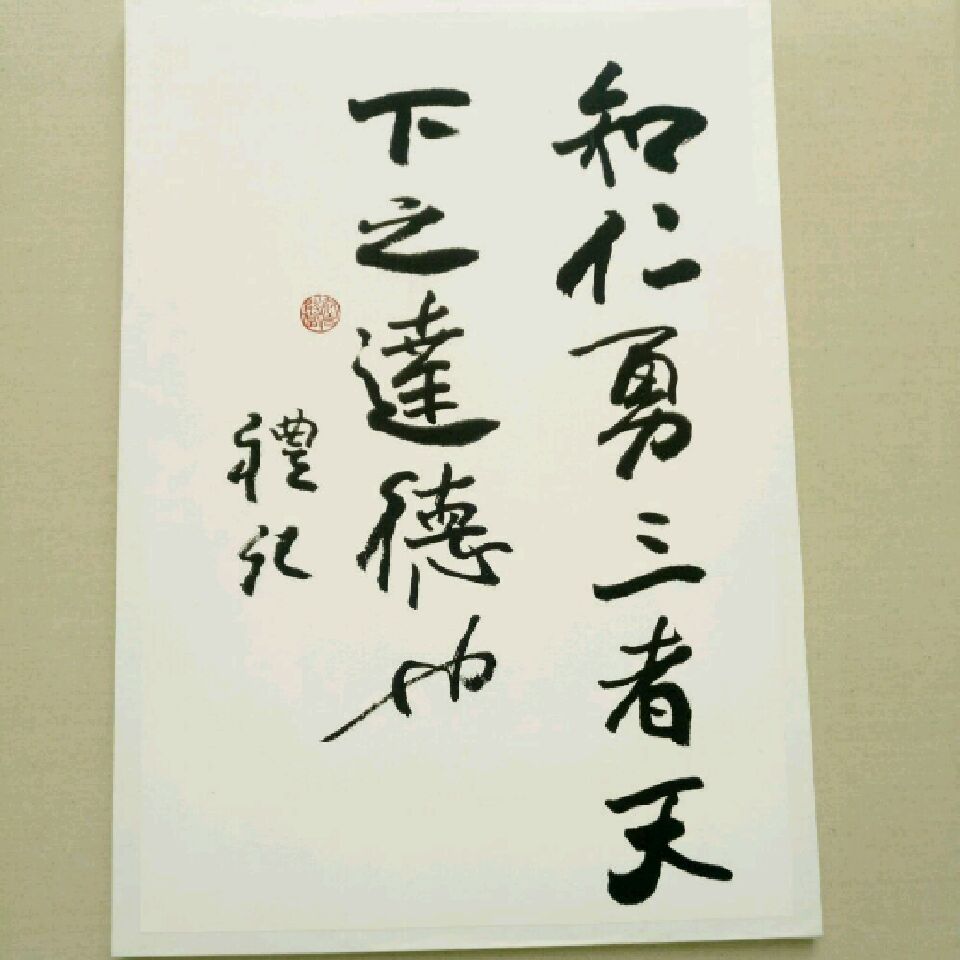 知仁勇三者天
下之達德也
禮記